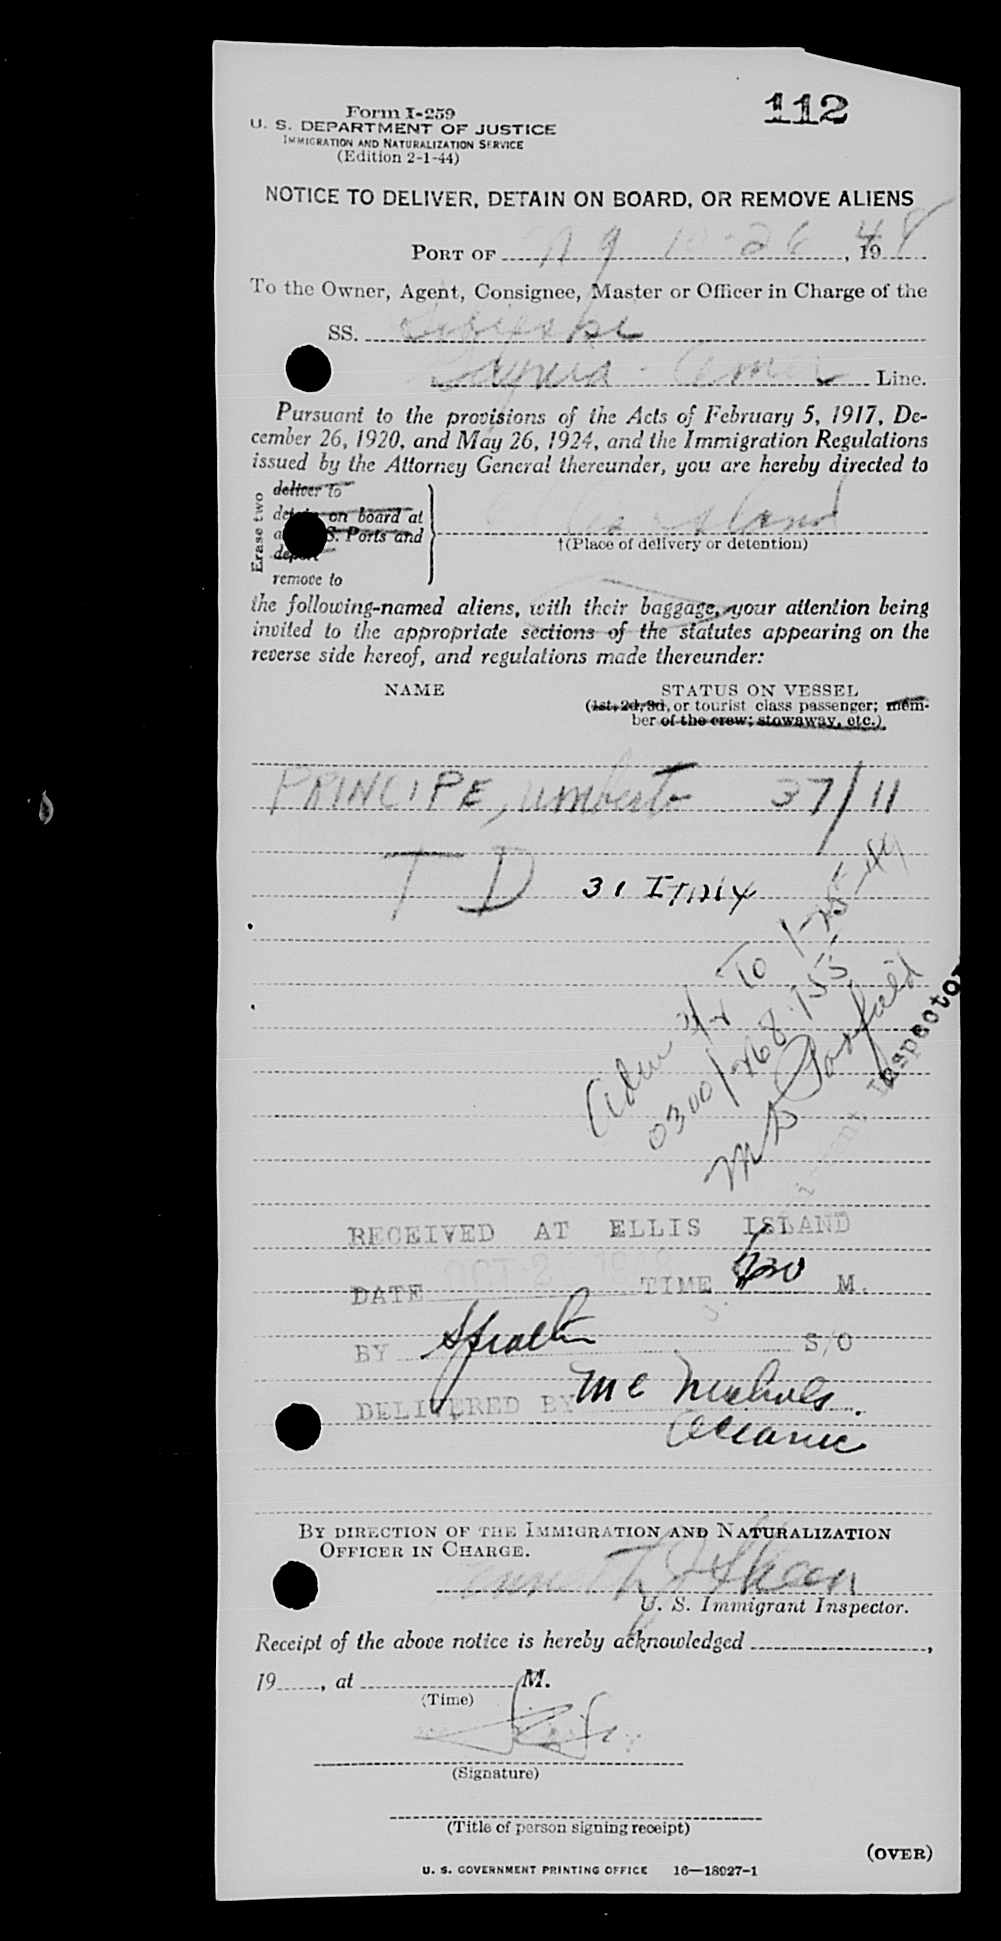 112
Form I-259
U. S. DEPARTMENT OF JUSTICE
IMMIGRATION AND NATURALIZATION SERVICE
(Edition 2-1-44)
NOTICE TO DELIVER, DETAIN ON BOARD, OR REMOVE ALIENS
PORT OF N Y 10-26, 1948
To the Owner, Agent, Consignee, Master or Officer in Charge of the
SS. Sobieski
Gdynia - Amer Line.
Pursuant to the provisions of the Acts of February 5, 1917, De-
cember 26, 1920, and May 26, 1924, and the Immigration Regulations
issued by the Attorney General thereunder, you are hereby directed to
Erase two
deliver to
on board at
S. Ports and
deport
remove to
Ellis Island
†(Place of delivery or detention)
the following-named aliens, with their baggage, your attention being
invited to the appropriate sections of the statutes appearing on the
reverse side hereof, and regulations made thereunder:
NAME
STATUS ON VESSEL
(1st, 2d, 3d, or tourist class passenger; mem-
ber of the crew; stowaway, etc.)
PRINCIPE, Umberto 37/11
T D 31
To 1-25-49
0300/
Inspector
RECEIVED AT ELLIS ISLAND
DATE OCT 2 TIME M.
BY S/O
DELIVERED BY Mc Nichols
Oceanic
BY DIRECTION OF THE IMMIGRATION AND NATURALIZATION
OFFICER IN CHARGE.
Kenneth J Skeen
U. S. Immigrant Inspector.
Receipt of the above notice is hereby acknowledged ,
19 , at M.
(Time)
(Signature)
(Title of person signing receipt)
(OVER)
U. S. GOVERNMENT PRINTING OFFICE 16—18927-1